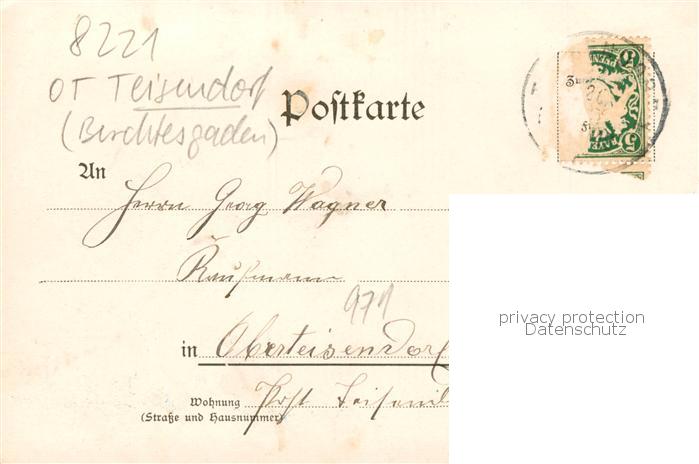 8221
OT Teisendorf
(Berchtesgaden)
Postkarte
An
Herrn Georg Wagner
Kaufmann
971
in Oberteisendorf
Wohnung Post Teisend
(Straße und Hausnummer)
5
privacy protection
Datenschutz